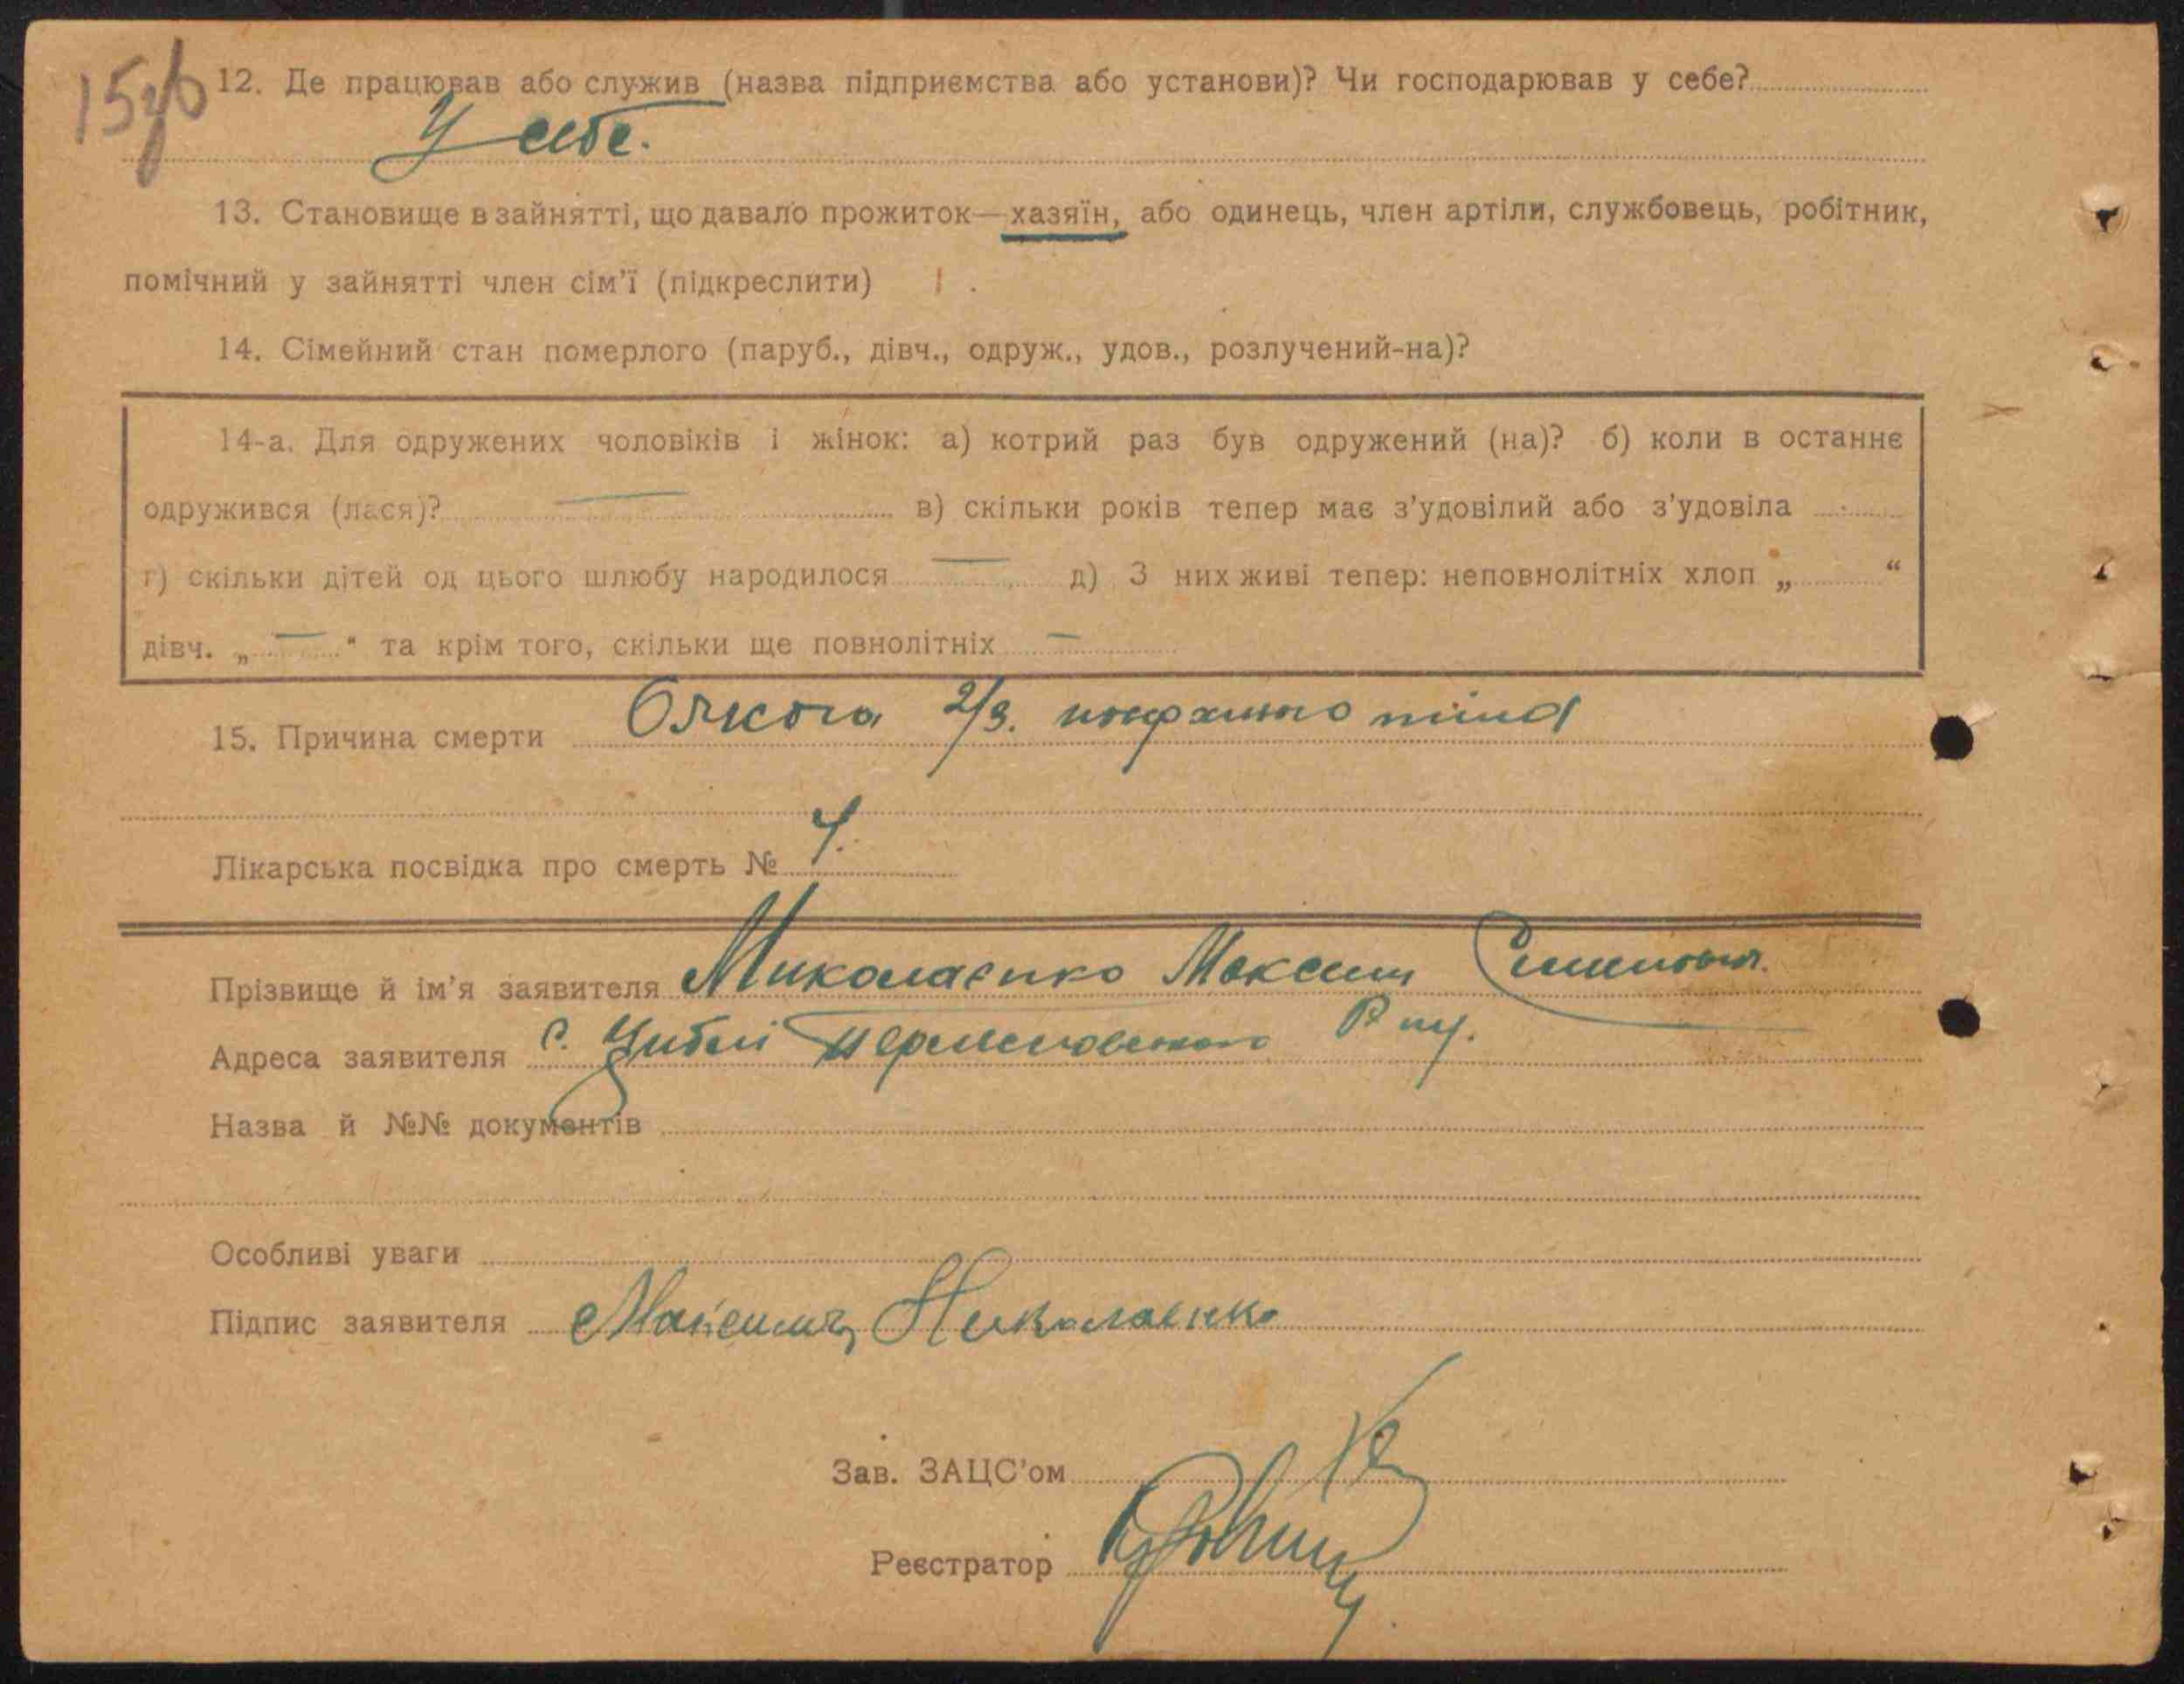 12. Де працював або служив (назва підприємства або установи)? Чи господарював у себе?
У себе.
13. Становище в зайнятті, що давало прожиток—хазяїн, або одинець, член артіли, службовець, робітник,
помічний у зайнятті член сім'ї (підкреслити)
14. Сімейний стан померлого (паруб., дівч., одруж., удов., розлучений-на)?
14-а. Для одружених чоловіків і жінок: а) котрий раз був одружений (на)? б) коли в останнє
одружився (лася)? — в) скільки років тепер має з'удовілий або з'удовіла
г) скільки дітей од цього шлюбу народилося — д) З них живі тепер: неповнолітніх хлоп „ “
дівч. „ — “ та крім того, скільки ще повнолітніх —
15. Причина смерти 2/3.
Лікарська посвідка про смерть №
Прізвище й ім'я заявителя Миколаєнко Максим
Адреса заявителя с. Циблі
Назва й №№ документів
Особливі уваги
Підпис заявителя Николаенко
Зав. ЗАЦС'ом
Реєстратор